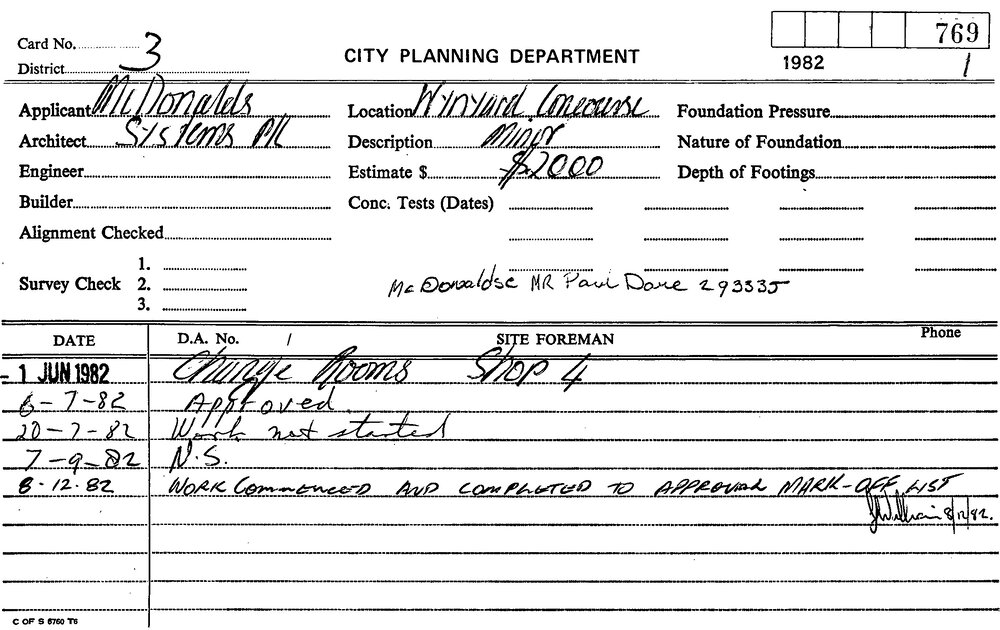 769
Card No. 3
CITY PLANNING DEPARTMENT
District
1982 1
Applicant McDonalds Location Wynyard Concourse Foundation Pressure
Architect Systems P/L Description Minor Nature of Foundation
Engineer Estimate $ $2000 Depth of Footings
Builder Conc. Tests (Dates)
Alignment Checked
1.
Survey Check 2. McDonaldse MR Paul Dare 293335
3.
DATE D.A. No. / SITE FOREMAN Phone
- 1 JUN 1982 Change Rooms Shop 4
6-7-82 Approved.
20-7-82 Work not started
7-9-82 N.S.
8.12.82 WORK COMMENCED AND COMPLETED TO APPROVAL MARK-OFF LIST
8/12/82.
C OF S 6760 T6